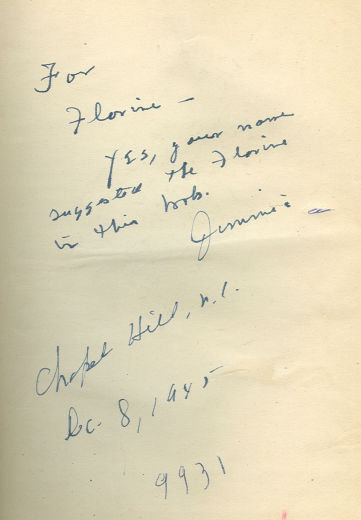 For
Florine —
Yes, your name
suggested the Florine
in this book.
Jimmie
Chapel Hill, N.C.
Dec. 8, 1945
9931